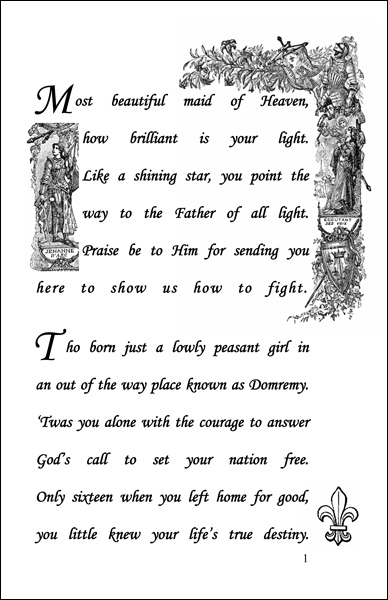 Most beautiful maid of Heaven,
how brilliant is your light.
Like a shining star, you point the
way to the Father of all light.
Praise be to Him for sending you
here to show us how to fight.
JEHANNE
D'ARC
ECOUTANT
SES VOIX
Tho born just a lowly peasant girl in
an out of the way place known as Domremy.
‘Twas you alone with the courage to answer
God’s call to set your nation free.
Only sixteen when you left home for good,
you little knew your life’s true destiny.
1